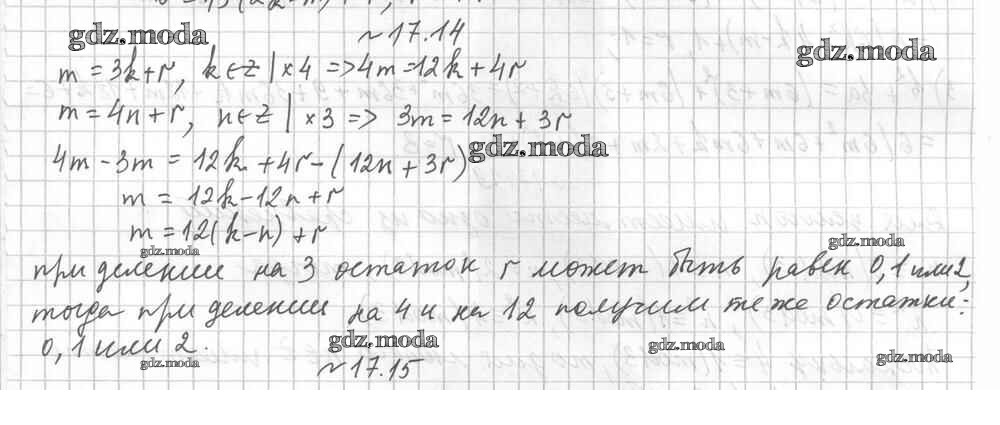 gdz.moda
~ 17.14
gdz.moda
m = 3k+r, k∈Z | ×4 => 4m = 12k + 4r
m = 4n + r, n∈Z | ×3 => 3m = 12n + 3r
4m - 3m = 12k + 4r - (12n + 3r)
gdz.moda
m = 12k - 12n + r
m = 12(k-n) + r
gdz.moda
gdz.moda
при делении на 3 остаток r может быть равен 0, 1 или 2,
тогда при делении на 4 и на 12 получим те же остатки:
0, 1 или 2.
gdz.moda
gdz.moda
gdz.moda
gdz.moda
~ 17.15